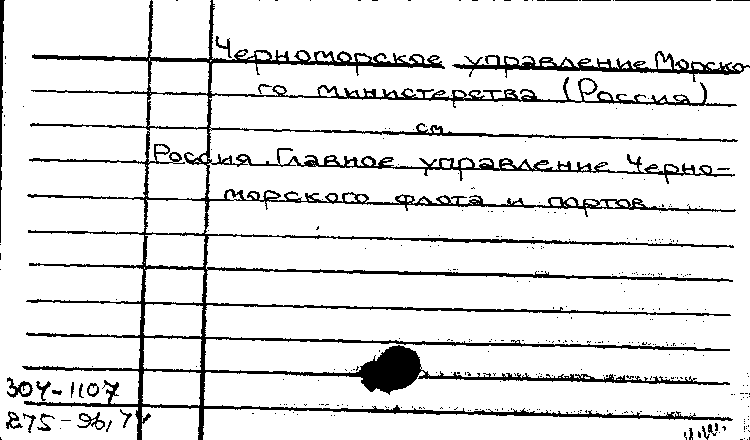 Черноморское управление Морско-
го министерства (Россия)
см.
Россия. Главное управление Черно-
морского флота и портов.
304-1107
275-96,74